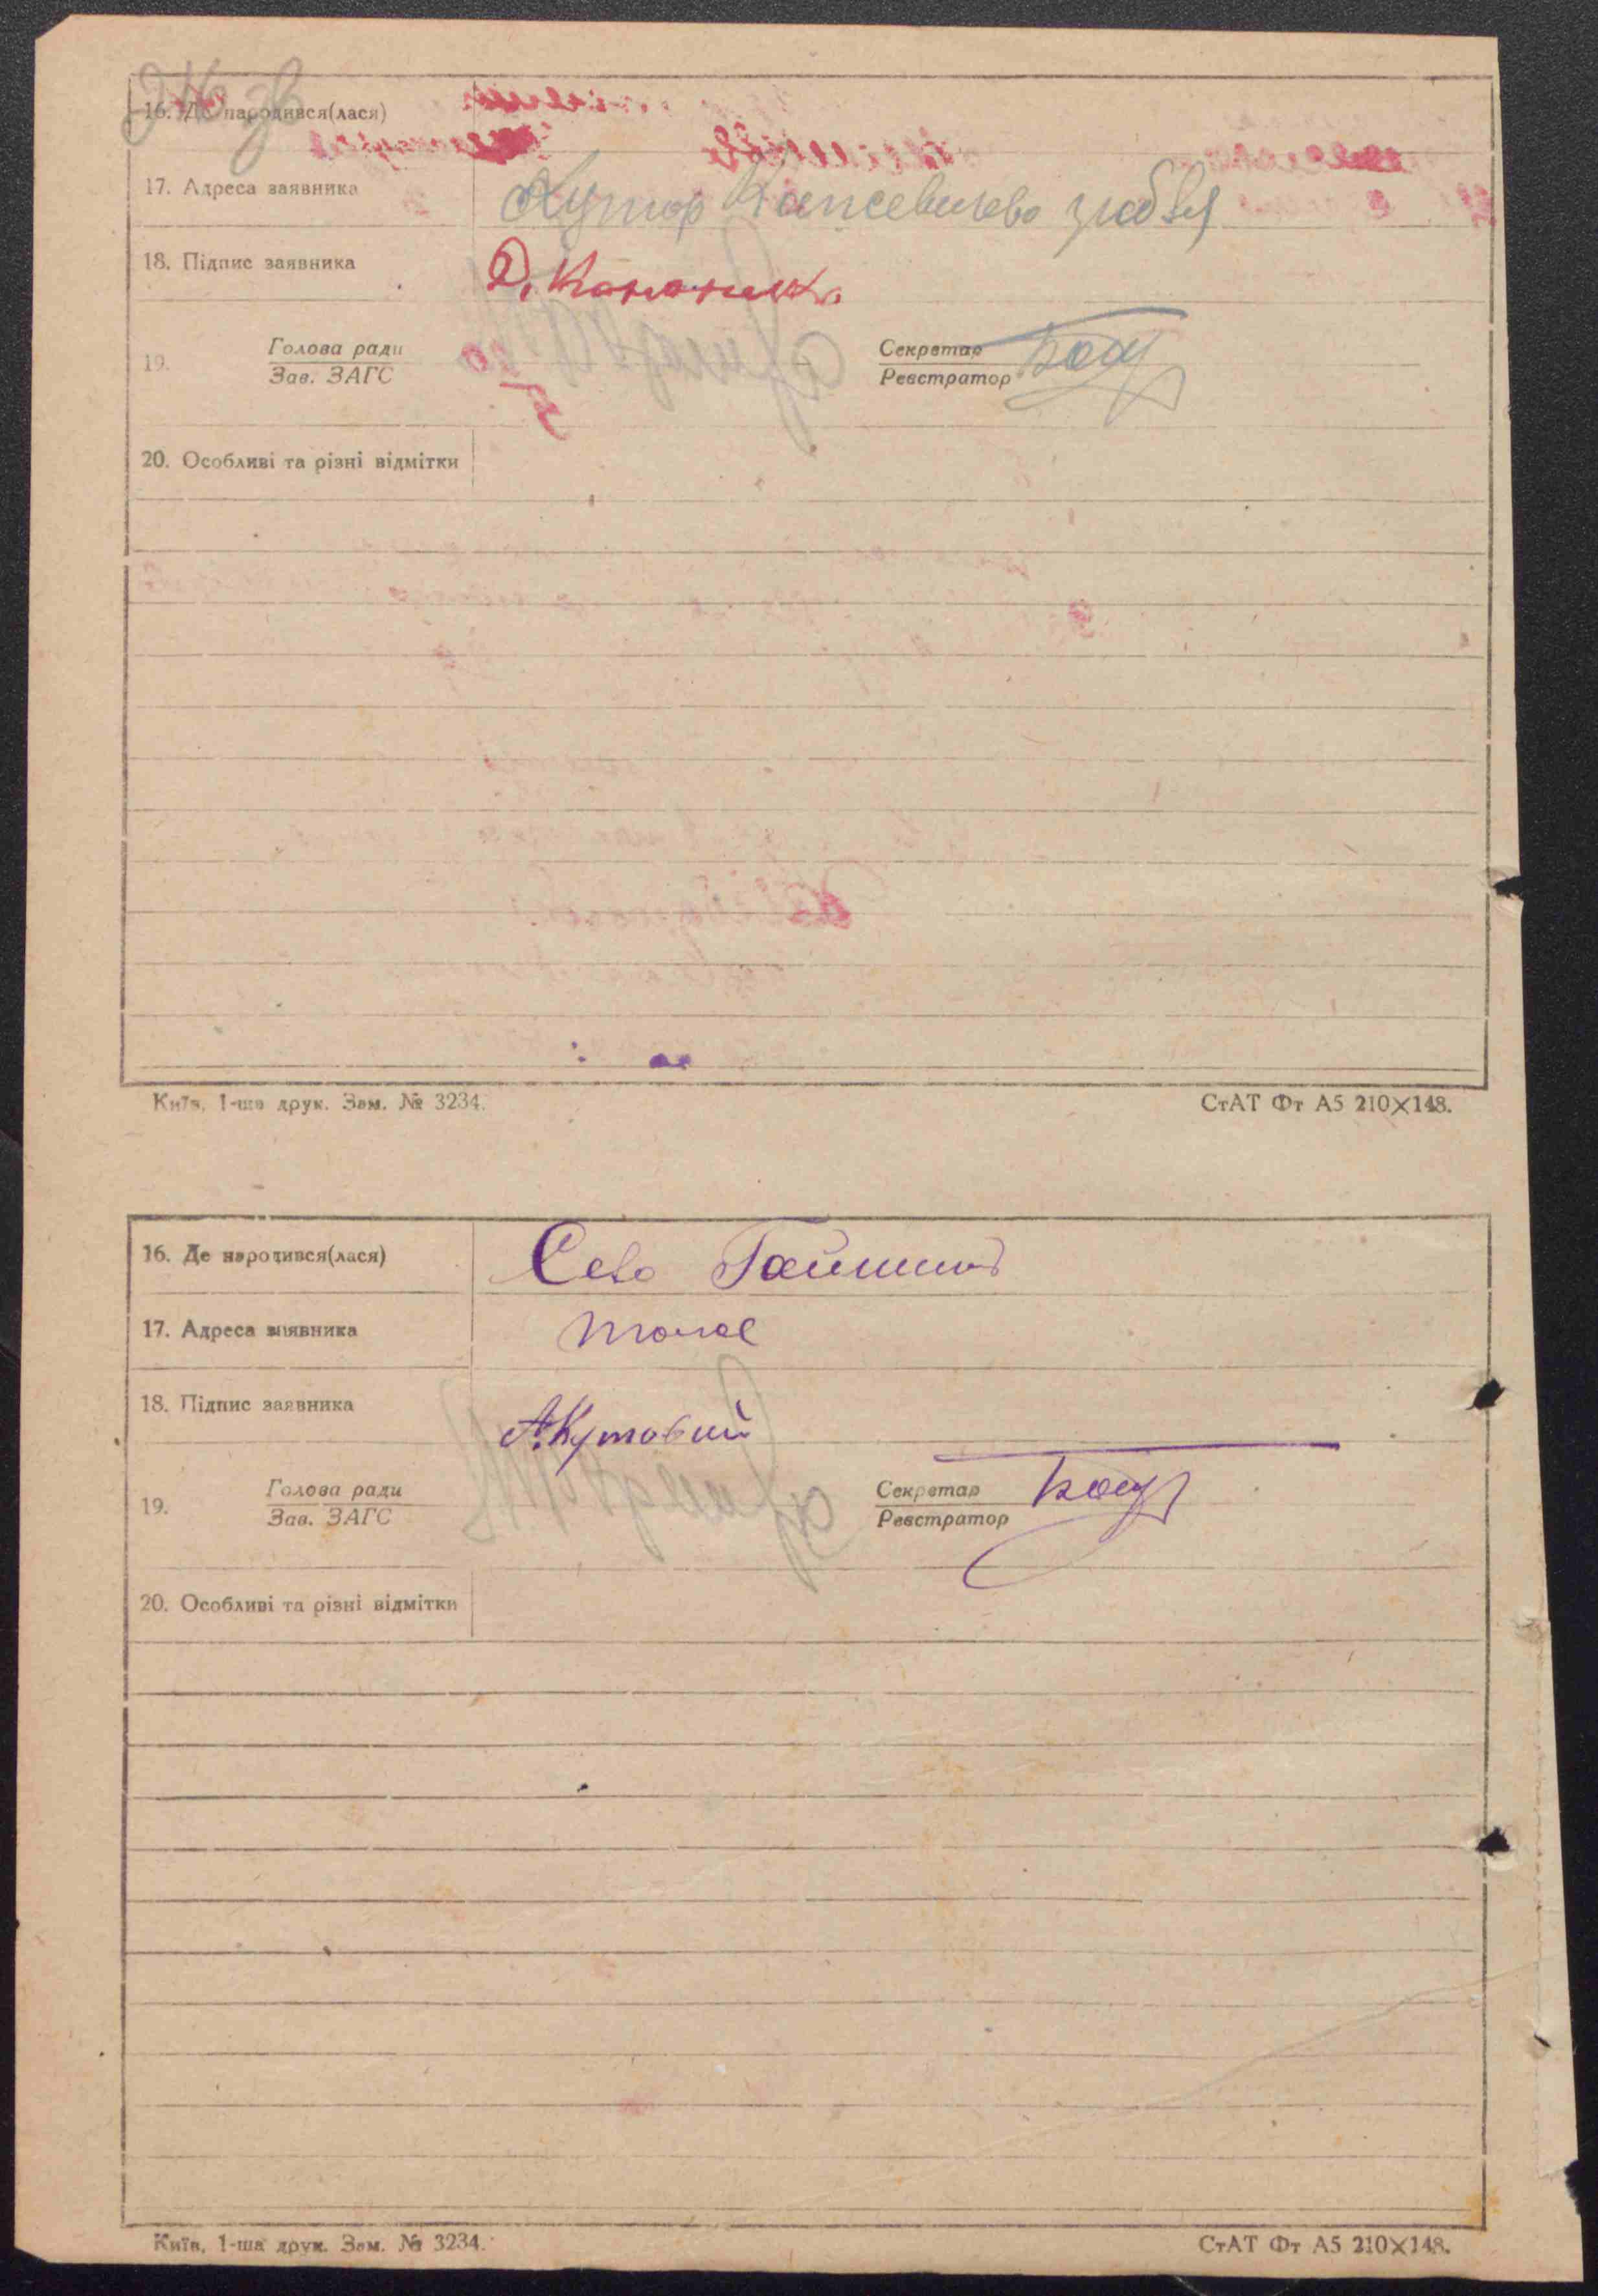 16. Де народився(лася)
17. Адреса заявника Хутор
18. Підпис заявника
19. Голова ради Секретар
Зав. ЗАГС Реєстратор
20. Особливі та різні відмітки
Київ, 1-ша друк. Зам. № 3234. СтАТ Фт А5 210×148.
16. Де народився(лася) Село Гайшин
17. Адреса заявника тоже
18. Підпис заявника А.Кутовий
19. Голова ради Секретар
Зав. ЗАГС Реєстратор
20. Особливі та різні відмітки
Київ, 1-ша друк. Зам. № 3234. СтАТ Фт А5 210×148.